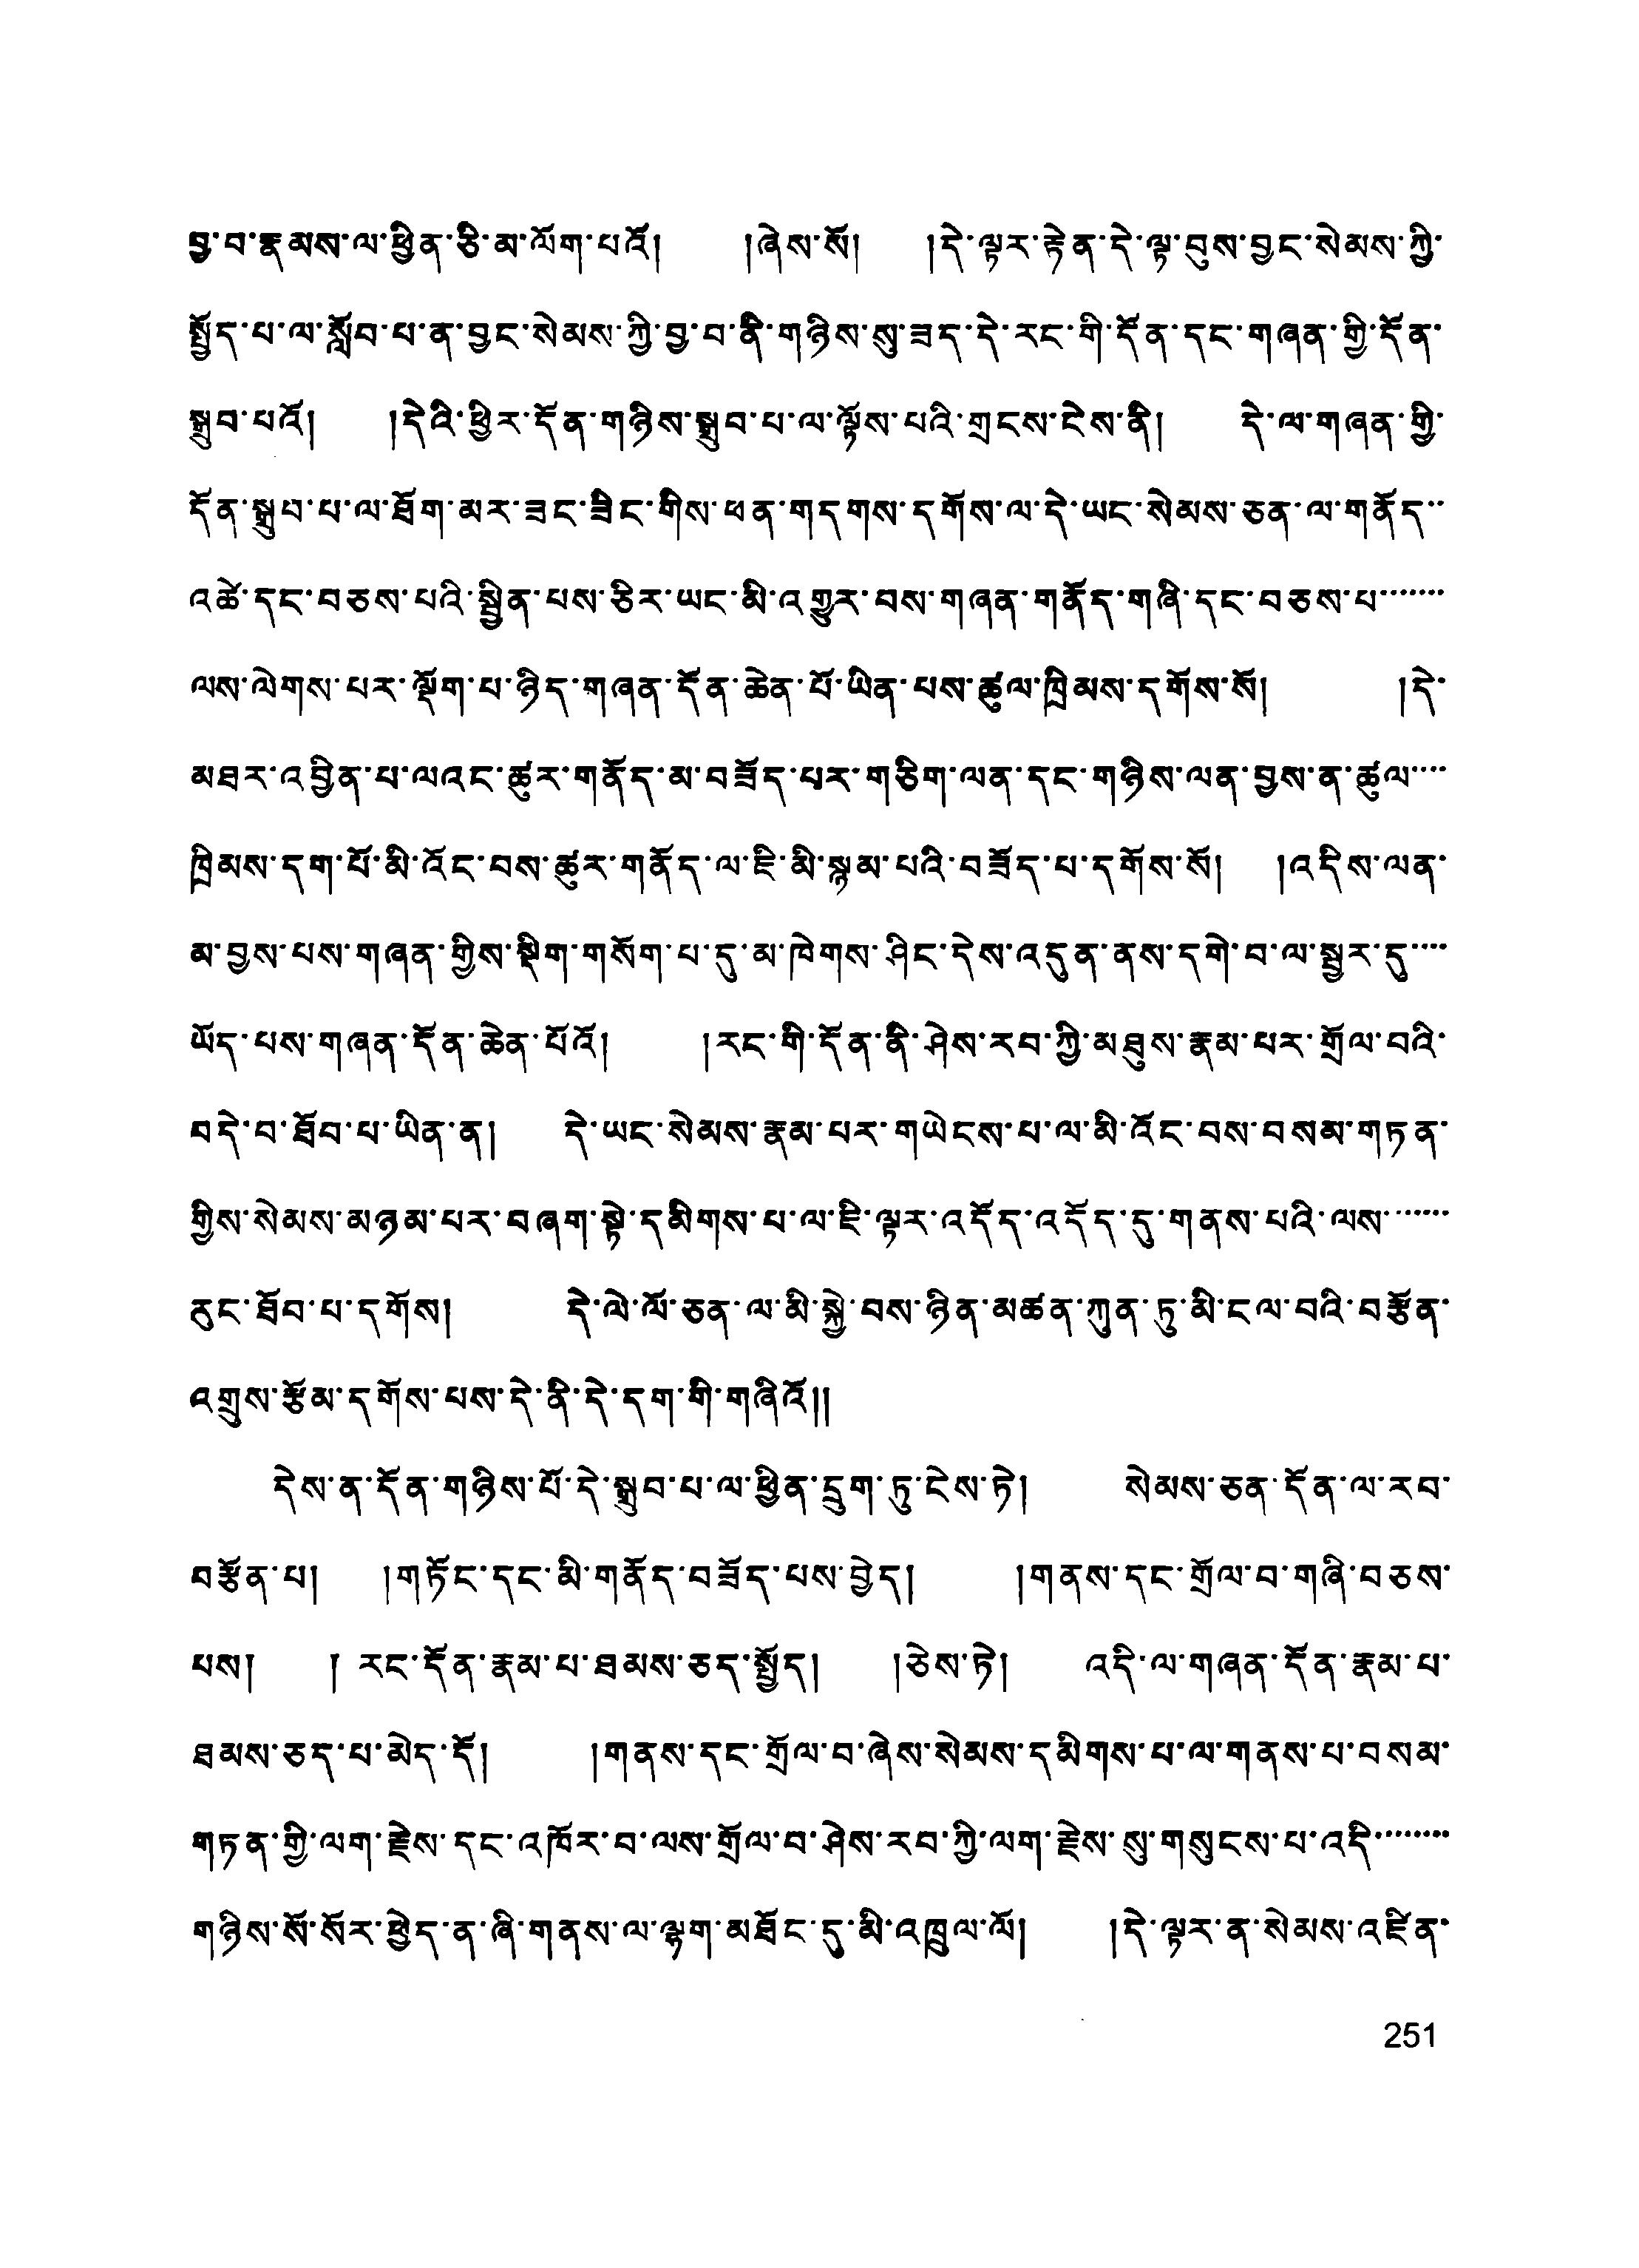 བྱ་བ་རྣམས་ལ་ཕྱིན་ཅི་མ་ལོག་པའོ། །ཞེས་སོ། །དེ་ལྟར་རྟེན་དེ་ལྟ་བུས་བྱང་སེམས་ཀྱི་
སྤྱོད་པ་ལ་སློབ་པ་ན་བྱང་སེམས་ཀྱི་བྱ་བ་ནི་གཉིས་སུ་ཟད་དེ་རང་གི་དོན་དང་གཞན་གྱི་དོན་
སྒྲུབ་པའོ། །དེའི་ཕྱིར་དོན་གཉིས་སྒྲུབ་པ་ལ་ལྟོས་པའི་གྲངས་ངེས་ནི། དེ་ལ་གཞན་གྱི་
དོན་སྒྲུབ་པ་ལ་ཐོག་མར་ཟང་ཟིང་གིས་ཕན་གདགས་དགོས་ལ་དེ་ཡང་སེམས་ཅན་ལ་གནོད་་
འཚེ་དང་བཅས་པའི་སྦྱིན་པས་ཅིར་ཡང་མི་འགྱུར་བས་གཞན་གནོད་གཞི་དང་བཅས་པ་་་་་་་
ལས་ལེགས་པར་ལྡོག་པ་ཉིད་གཞན་དོན་ཆེན་པོ་ཡིན་པས་ཚུལ་ཁྲིམས་དགོས་སོ། །དེ་
མཐར་འབྱིན་པ་ལའང་ཚུར་གནོད་མ་བཟོད་པར་གཅིག་ལན་དང་གཉིས་ལན་བྱས་ན་ཚུལ་་་་
ཁྲིམས་དག་པོ་མི་འོང་བས་ཚུར་གནོད་ལ་ཇི་མི་སྙམ་པའི་བཟོད་པ་དགོས་སོ། །འདིས་ལན་
མ་བྱས་པས་གཞན་གྱིས་སྡིག་གསོག་པ་དུ་མ་ཁེགས་ཤིང་དེས་འདུན་ནས་དགེ་བ་ལ་སྦྱར་དུ་་་་
ཡོད་པས་གཞན་དོན་ཆེན་པོའོ། །རང་གི་དོན་ནི་ཤེས་རབ་ཀྱི་མཐུས་རྣམ་པར་གྲོལ་བའི་
བདེ་བ་ཐོབ་པ་ཡིན་ན། དེ་ཡང་སེམས་རྣམ་པར་གཡེངས་པ་ལ་མི་འོང་བས་བསམ་གཏན་
གྱིས་སེམས་མཉམ་པར་བཞག་སྟེ་དམིགས་པ་ལ་ཇི་ལྟར་འདོད་འདོད་དུ་གནས་པའི་ལས་་་་་་་
རུང་ཐོབ་པ་དགོས། དེ་ལེ་ལོ་ཅན་ལ་མི་སྐྱེ་བས་ཉིན་མཚན་ཀུན་ཏུ་མི་ངལ་བའི་བརྩོན་
འགྲུས་རྩོམ་དགོས་པས་དེ་ནི་དེ་དག་གི་གཞིའོ།།
དེས་ན་དོན་གཉིས་པོ་དེ་སྒྲུབ་པ་ལ་ཕྱིན་དྲུག་ཏུ་ངེས་ཏེ། སེམས་ཅན་དོན་ལ་རབ་
བརྩོན་པ། །གཏོང་དང་མི་གནོད་བཟོད་པས་བྱེད། །གནས་དང་གྲོལ་བ་གཞི་བཅས་
པས། །རང་དོན་རྣམ་པ་ཐམས་ཅད་སྤྱོད། །ཅེས་ཏེ། འདི་ལ་གཞན་དོན་རྣམ་པ་
ཐམས་ཅད་པ་མེད་དོ། །གནས་དང་གྲོལ་བ་ཞེས་སེམས་དམིགས་པ་ལ་གནས་པ་བསམ་
གཏན་གྱི་ལག་རྗེས་དང་འཁོར་བ་ལས་གྲོལ་བ་ཤེས་རབ་ཀྱི་ལག་རྗེས་སུ་གསུངས་པ་འདི་་་་་་་་
གཉིས་སོ་སོར་ཕྱེད་ན་ཞི་གནས་ལ་ལྷག་མཐོང་དུ་མི་འཁྲུལ་ལོ། །དེ་ལྟར་ན་སེམས་འཛིན་
251